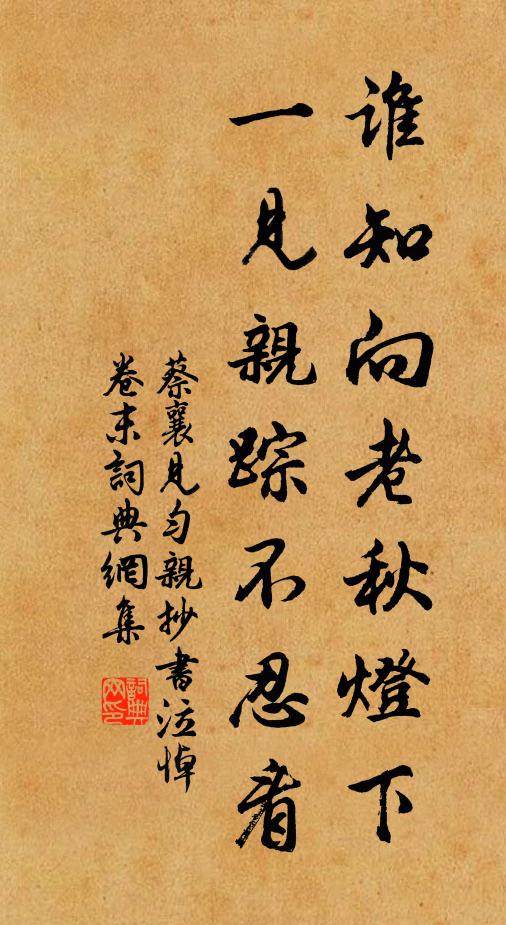 誰知向老秋燈下
一見親踪不忍看
蔡襄見勻親抄書泣悼
卷末詞典網集
詞典網印